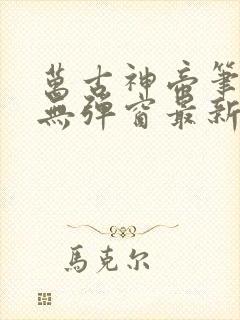 萬古神帝筆
無彈窗最新
馬克尔